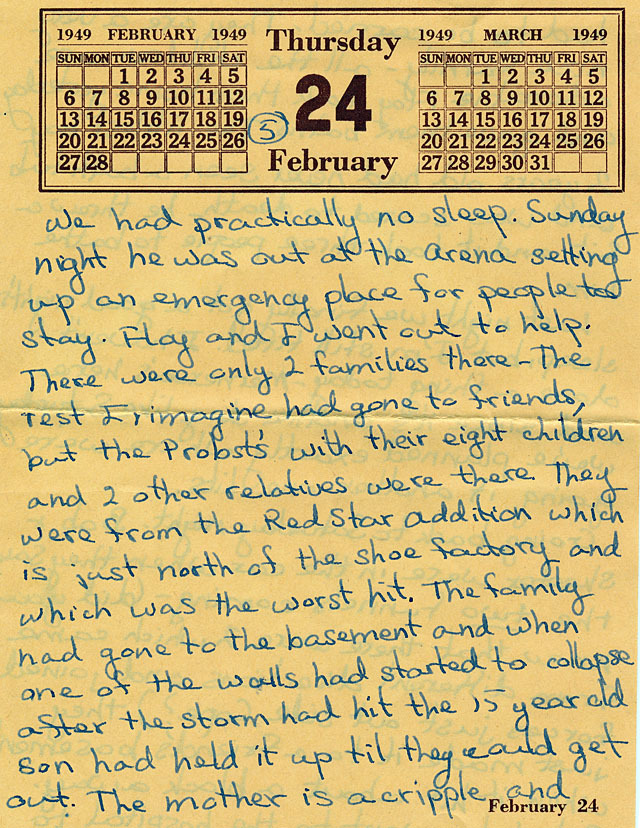 1949 FEBRUARY 1949
SUN MON TUE WED THU FRI SAT
1 2 3 4 5
6 7 8 9 10 11 12
13 14 15 16 17 18 19
20 21 22 23 24 25 26
27 28
Thursday
24
5
February
1949 MARCH 1949
SUN MON TUE WED THU FRI SAT
1 2 3 4 5
6 7 8 9 10 11 12
13 14 15 16 17 18 19
20 21 22 23 24 25 26
27 28 29 30 31
we had practically no sleep. Sunday
night he was out at the arena setting
up an emergency place for people to
stay. Flay and I went out to help.
There were only 2 families there - The
rest I imagine had gone to friends,
but the Probst's with their eight children
and 2 other relatives were there. They
were from the Red Star addition which
is just north of the shoe factory and
which was the worst hit. The family
had gone to the basement and when
one of the walls had started to collapse
after the storm had hit the 15 year old
son had held it up til they could get
out. The mother is a cripple and
February 24